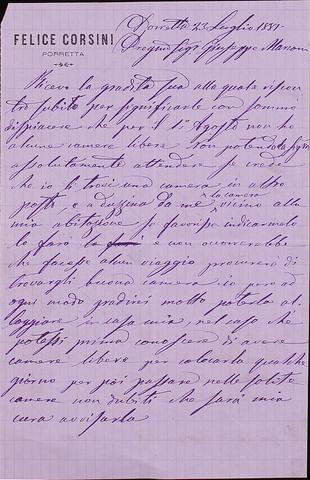 FELICE CORSINI
PORRETTA
Porretta 23 Luglio 1881
Pregmo Sigr Giuseppe Marconi
Ricevo la gradita sua alla quale rispon
do subito per significarle con sommo
dispiacere che per il 1° Agosto non ho
alcune camere libere. Non potendola
assolutamente attendere se crede
che io li trovi una camera in altro
posto, e a dozzina da me la camera vicino alla
mia abitazione se favorisce indicarmelo
lo farò e non occorrerebbe
che facesse alcun viaggio procurerò di
trovargli buona camera io però ad
ogni modo gradirei molto poterla al
loggiare in casa mia, nel caso che
potessi prima conoscere di avere
camere libere per collocarla qualche
giorno per poi passare nelle solite
camere non dubiti che sarà mia
cura avvisarla